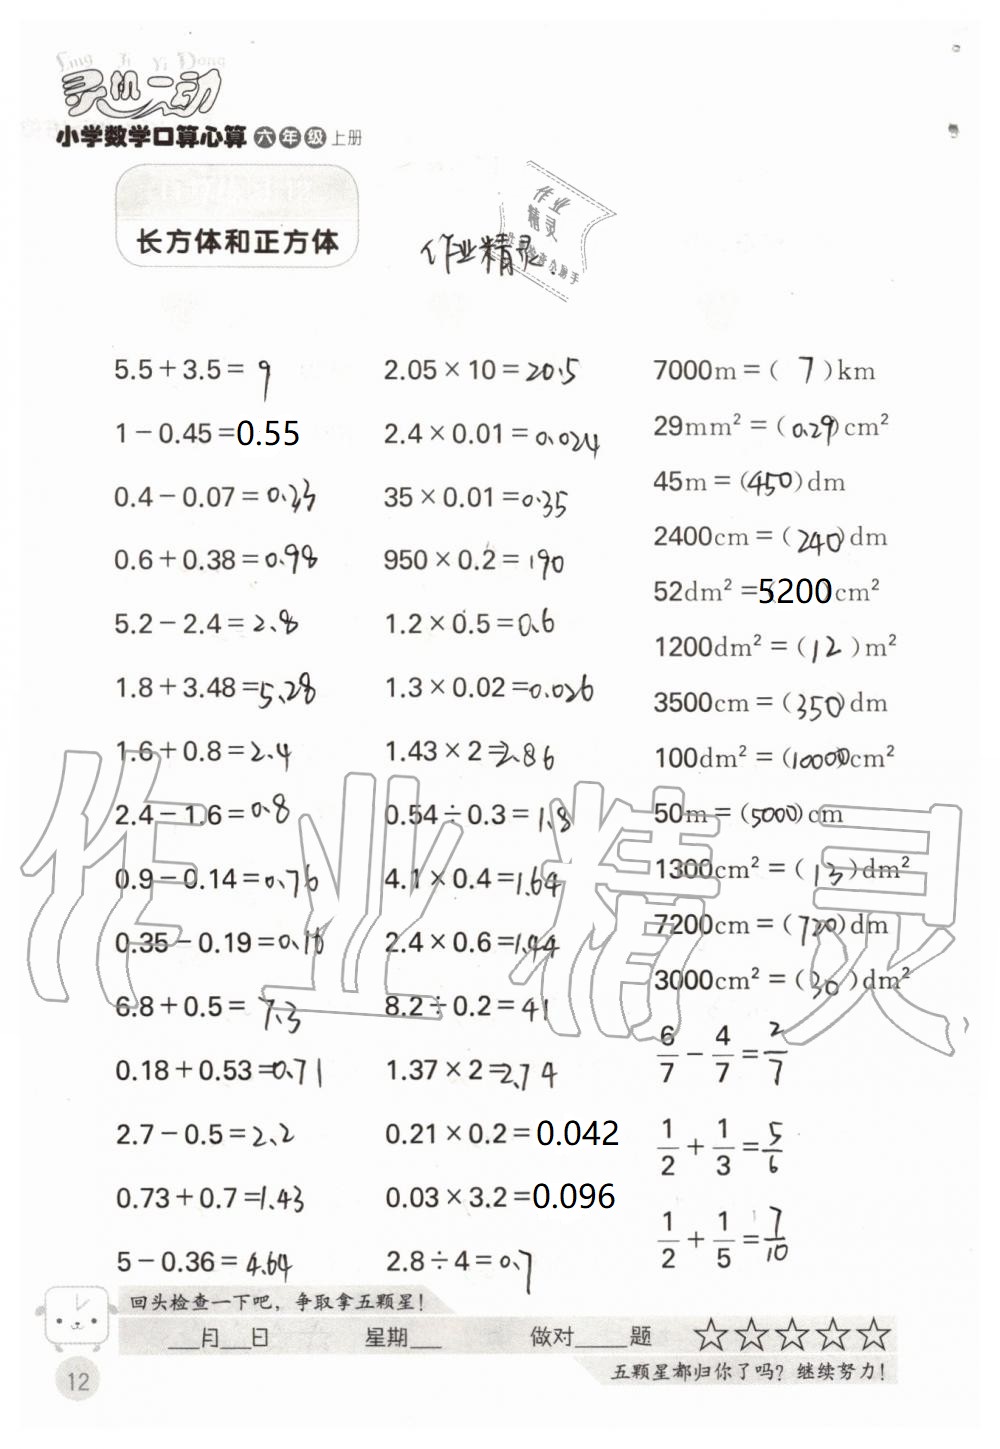 Ling Ji Yi Dong
灵机一动
小学数学口算心算 六年级 上册
长方体和正方体
作业精灵
作业
精灵
5.5+3.5=9
1-0.45=0.55
0.4-0.07=0.33
0.6+0.38=0.98
5.2-2.4=2.8
1.8+3.48=5.28
1.6+0.8=2.4
2.4-1.6=0.8
0.9-0.14=0.76
0.35-0.19=0.16
6.8+0.5=7.3
0.18+0.53=0.71
2.7-0.5=2.2
0.73+0.7=1.43
5-0.36=4.64
2.05×10=20.5
2.4×0.01=0.024
35×0.01=0.35
950×0.2=190
1.2×0.5=0.6
1.3×0.02=0.026
1.43×2=2.86
0.54÷0.3=1.8
4.1×0.4=1.64
2.4×0.6=1.44
8.2÷0.2=41
1.37×2=2.74
0.21×0.2=0.042
0.03×3.2=0.096
2.8÷4=0.7
7000m=(7)km
29mm²=(0.29)cm²
45m=(450)dm
2400cm=(240)dm
52dm²=5200cm²
1200dm²=(12)m²
3500cm=(350)dm
100dm²=(10000)cm²
50m=(5000)cm
1300cm²=(13)dm²
7200cm=(720)dm
3000cm²=(30)dm²
6/7-4/7=2/7
1/2+1/3=5/6
1/2+1/5=7/10
作业精灵
回头检查一下吧，争取拿五颗星！
___月___日 星期___ 做对_____题 ☆☆☆☆☆
五颗星都归你了吗？继续努力！
12